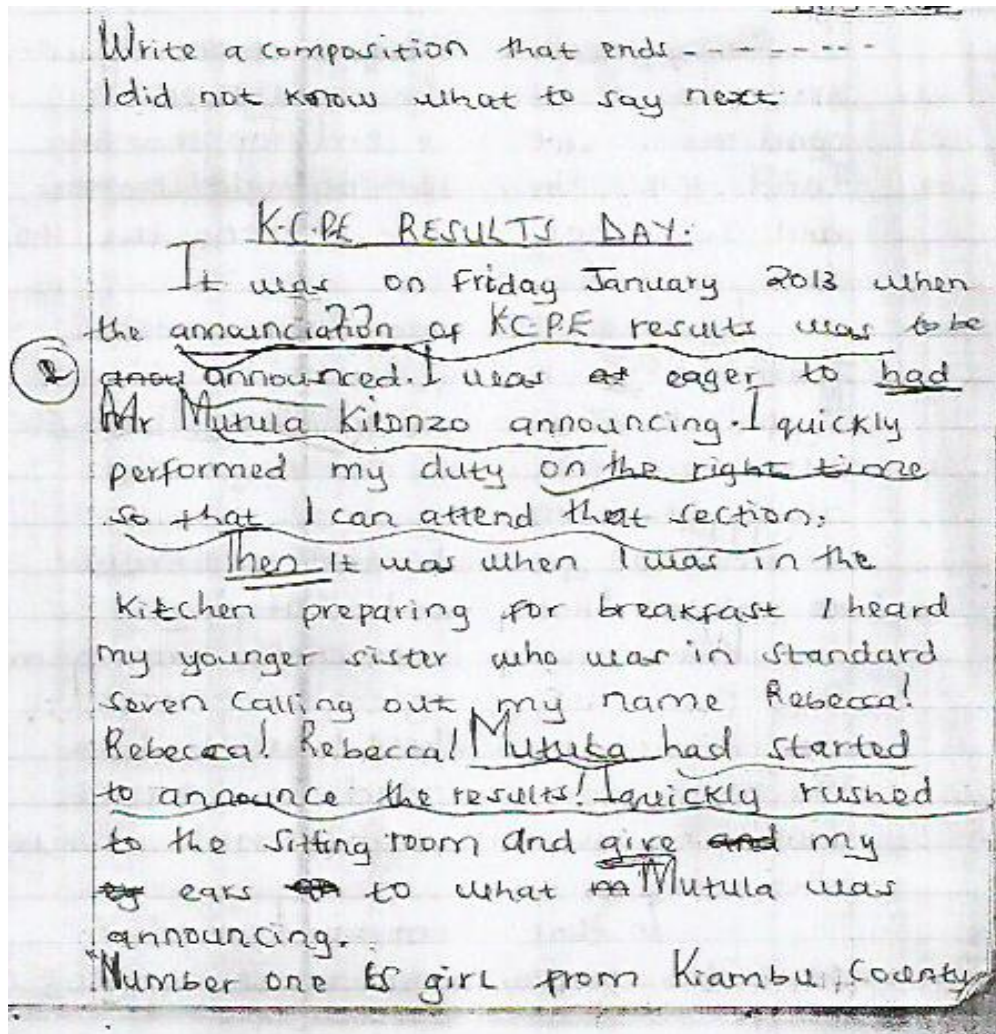 Write a composition that ends--------
I did not know what to say next
K.C.P.E RESULTS DAY:
It was on Friday January 2013 when
the announciation of KCPE results was to be
announced. I was eager to had
Mr Mutula Kilonzo announcing. I quickly
performed my duty on the right time
so that I can attend that section.
Then it was when I was in the
kitchen preparing for breakfast I heard
my younger sister who was in standard
seven calling out my name Rebecca!
Rebecca! Rebecca! Mutula had started
to announce the results! I quickly rushed
to the sitting room and give my
ears to what Mutula was
announcing.
Number one is girl from Kiambu County